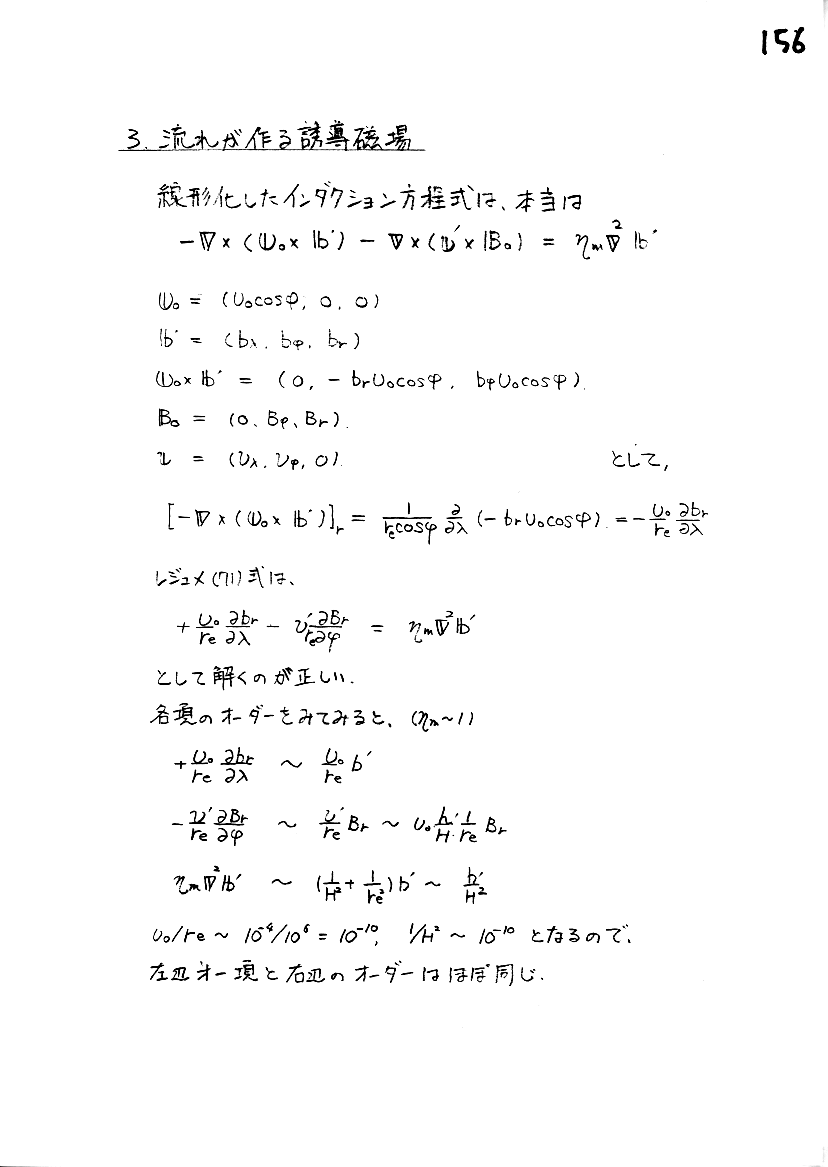 156
3. 流れが作る誘導磁場
線形化したインダクション方程式は、本当は
-∇×(𝕌₀×𝕓′) - ∇×(𝕦′×𝔹₀) = ηₘ∇²𝕓′
𝕌₀ = (U₀cosφ, 0, 0)
𝕓′ = (bλ, bφ, br)
𝕌₀×𝕓′ = (0, -brU₀cosφ, bφU₀cosφ).
𝔹₀ = (0, Bφ, Br).
𝕦 = (υλ, υφ, 0). として,
[-∇×(𝕌₀×𝕓′)]r = 1/(re cosφ) ∂/∂λ (-brU₀cosφ). = -U₀/re ∂br/∂λ
レジュメ(71)式は、
+U₀/re ∂br/∂λ - υ′∂Br/re∂φ = ηₘ∇²𝕓′
として解くのが正しい.
各項のオーダーをみてみると、(ηₘ~1)
+U₀/re ∂br/∂λ ~ U₀/re b′
-υ′/re ∂Br/∂φ ~ υ′/re Br ~ U₀ h′/H · 1/re Br
ηₘ∇²𝕓′ ~ (1/H² + 1/re²)b′ ~ b′/H²
U₀/re ~ 10⁻⁴/10⁶ = 10⁻¹⁰, 1/H² ~ 10⁻¹⁰ となるので、
左辺オ一項と右辺のオーダーはほぼ同じ.